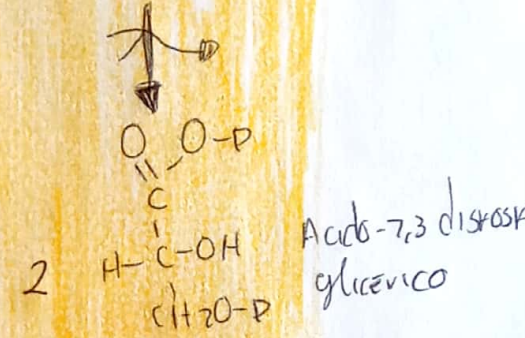 O O-P
C
2 H-C-OH
CH2O-P
Acido-1,3 disfosf
glicerico